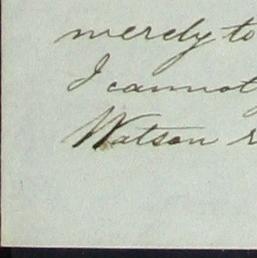 merely to
I cannot
Watson